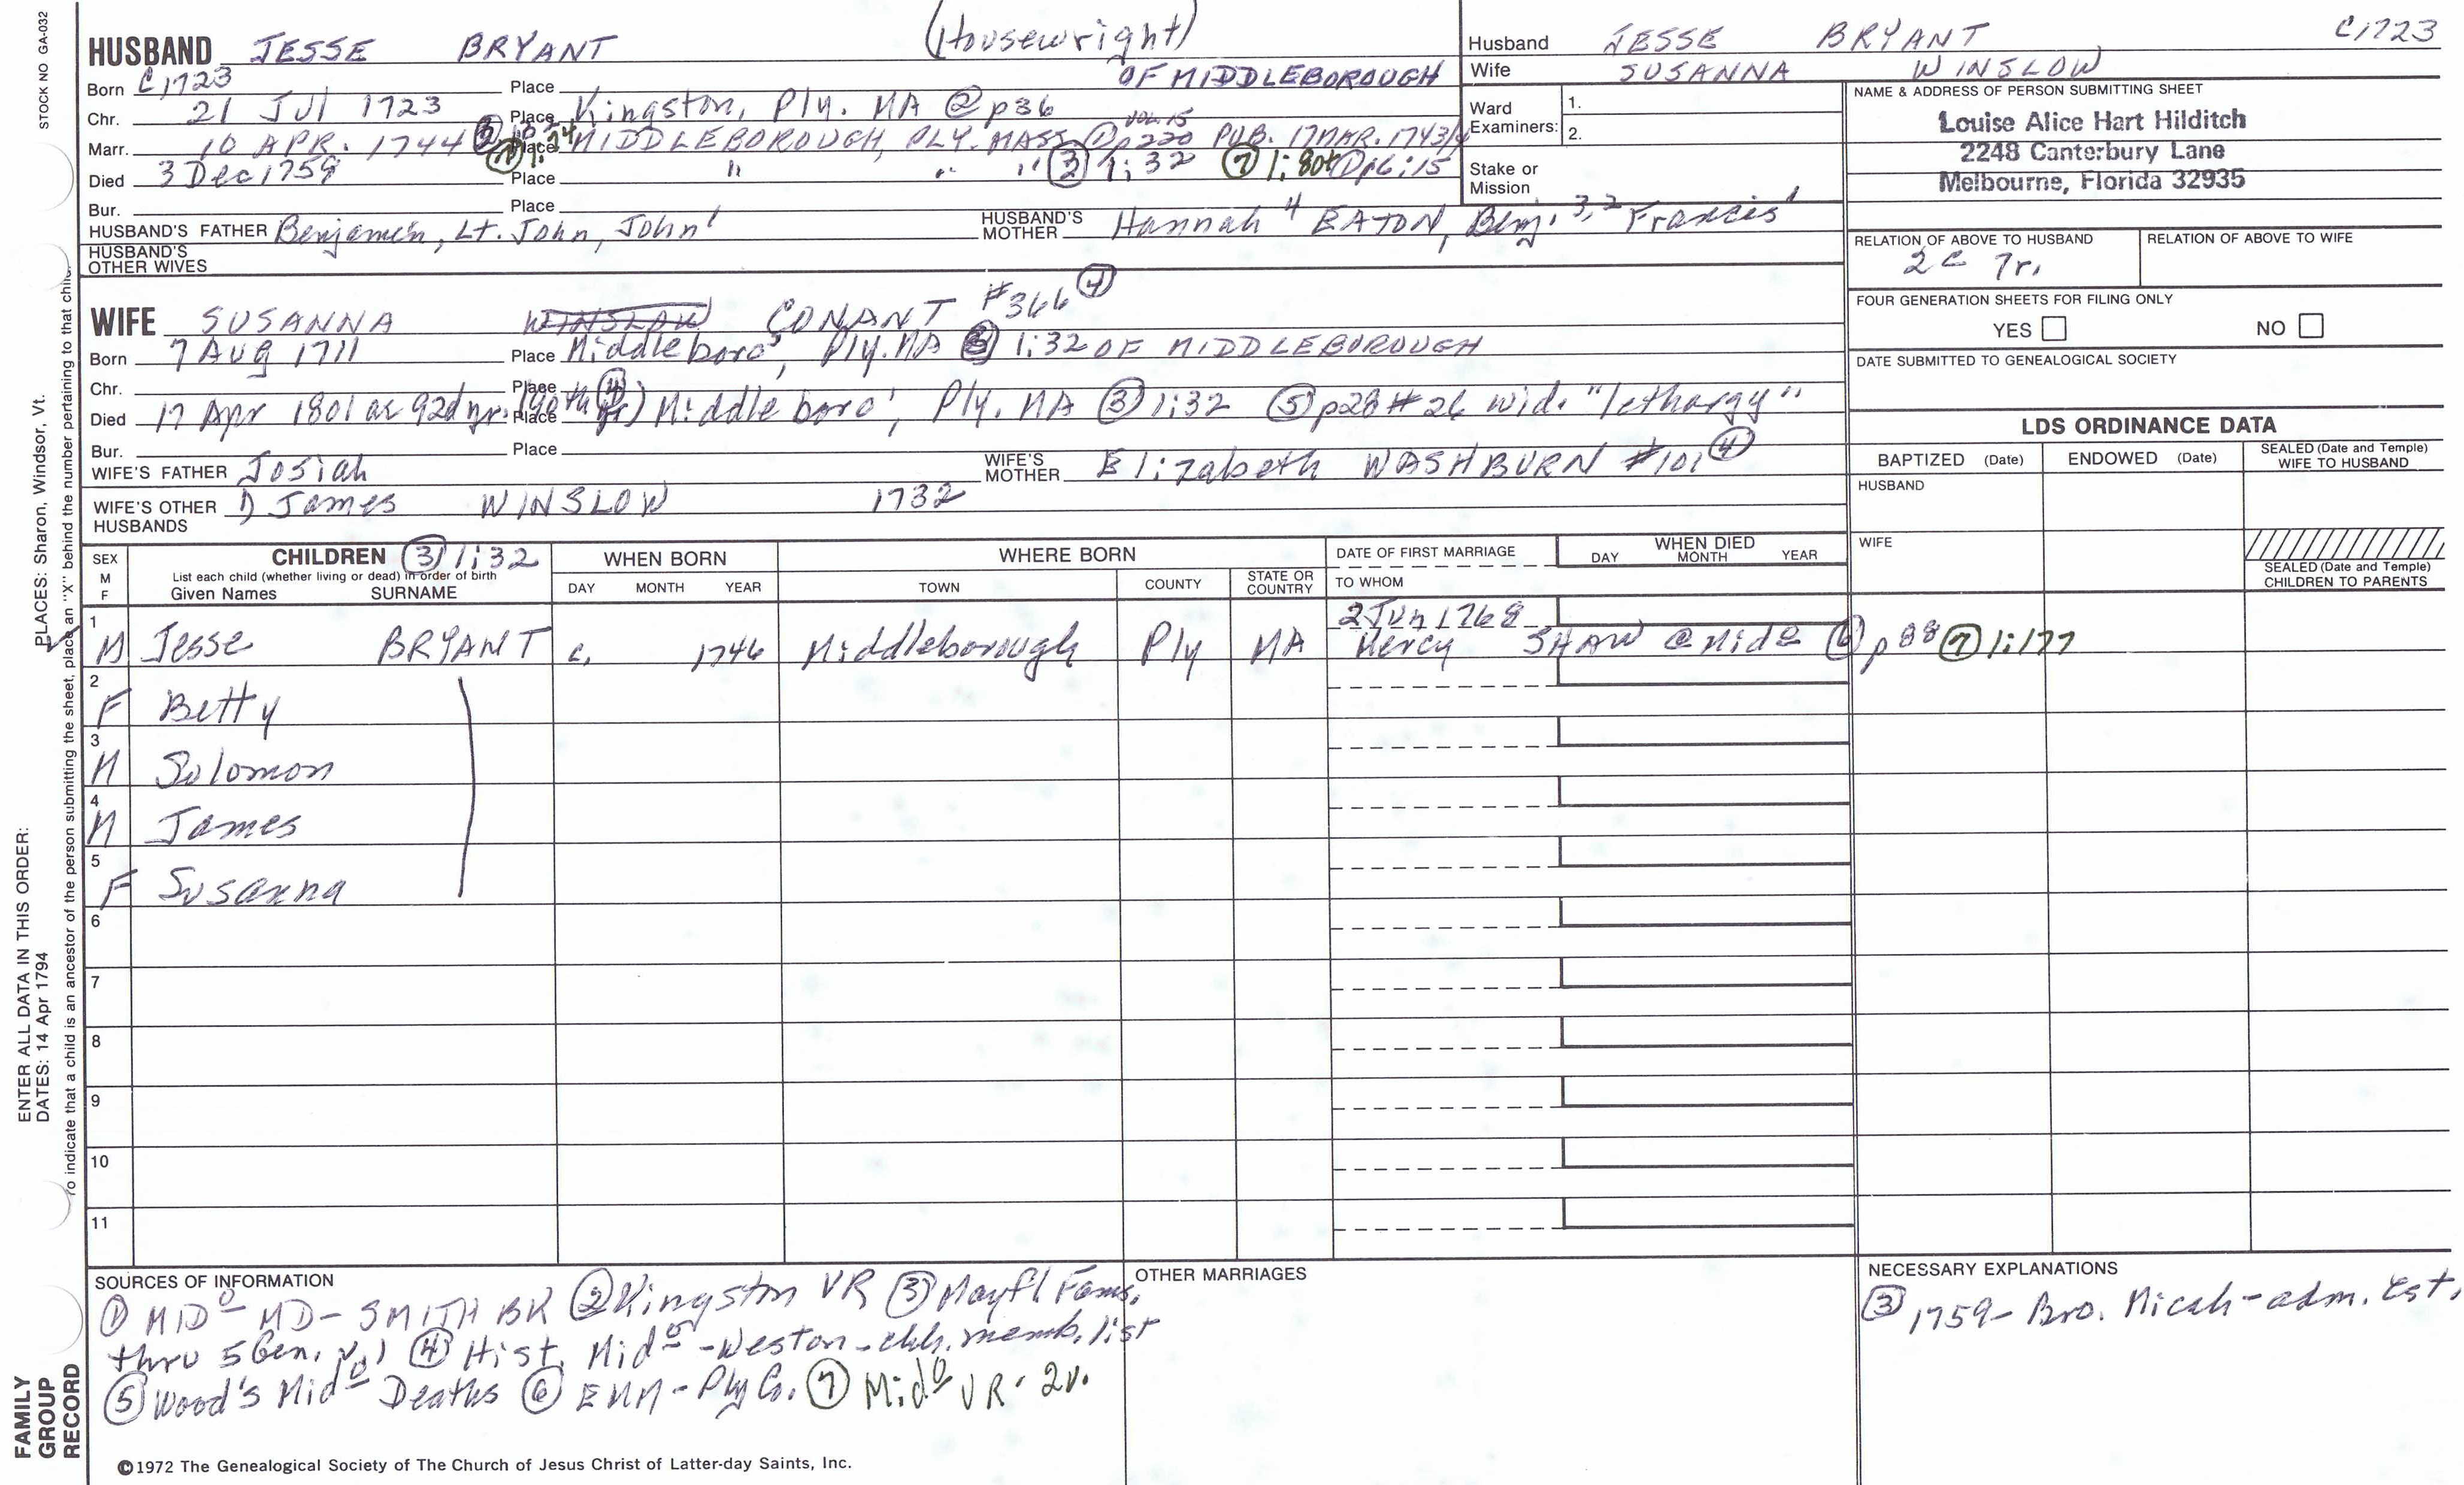 STOCK NO GA-032
PLACES: Sharon, Windsor, Vt.
ENTER ALL DATA IN THIS ORDER:
DATES: 14 Apr 1794
To indicate that a child is an ancestor of the person submitting the sheet, place an "X" behind the number pertaining to that child.
FAMILY GROUP RECORD
(Housewright)
HUSBAND JESSE BRYANT OF MIDDLEBOROUGH
Born C1723 Place
Chr. 21 Jul 1723 Place Kingston, Ply. MA ② p36
Marr. 10 APR. 1744 Place MIDDLEBOROUGH, PLY. MASS ① VOL. 15 p220 PUB. 17 MAR. 1743/4
Died 3 Dec 1759 Place " " " ③ 1:32 ⑦ 1:80
Bur. Place
HUSBAND'S FATHER Benjamin, Lt. John, John¹ HUSBAND'S MOTHER Hannah⁴ EATON, Benj.³,² Francis¹
HUSBAND'S OTHER WIVES
WIFE SUSANNA WINSLOW CONANT #366 ④
Born 7 Aug 1711 Place Middleboro', Ply. MA ③ 1:32 OF MIDDLEBOROUGH
Chr. Place
Died 17 Apr 1801 ae 92d yr. (90th yr) ④ Place Middleboro', Ply. MA ③ 1:32 ⑤ p28 #26 wid. "lethargy"
Bur. Place
WIFE'S FATHER Josiah WIFE'S MOTHER Elizabeth WASHBURN #101 ④
WIFE'S OTHER HUSBANDS 1) James WINSLOW 1732
Husband JESSE BRYANT C1723
Wife SUSANNA WINSLOW
Ward Examiners: 1.
2.
Stake or Mission
NAME & ADDRESS OF PERSON SUBMITTING SHEET
Louise Alice Hart Hilditch
2248 Canterbury Lane
Melbourne, Florida 32935
RELATION OF ABOVE TO HUSBAND RELATION OF ABOVE TO WIFE
2c 7r.
FOUR GENERATION SHEETS FOR FILING ONLY
YES NO
DATE SUBMITTED TO GENEALOGICAL SOCIETY
LDS ORDINANCE DATA
BAPTIZED (Date) ENDOWED (Date) SEALED (Date and Temple) WIFE TO HUSBAND
HUSBAND
WIFE
SEALED (Date and Temple) CHILDREN TO PARENTS
SEX M F CHILDREN ③ 1:32 WHEN BORN WHERE BORN DATE OF FIRST MARRIAGE WHEN DIED
List each child (whether living or dead) in order of birth DAY MONTH YEAR
Given Names SURNAME DAY MONTH YEAR TOWN COUNTY STATE OR COUNTRY TO WHOM
1 M Jesse BRYANT c. 1746 Middleborough Ply MA 2 Jun 1768
Mercy SHAW @ Mido ⑥ p88 ⑦ 1:177
2 F Betty
3 M Solomon
4 M James
5 F Susanna
6
7
8
9
10
11
SOURCES OF INFORMATION
① MIDo MD - SMITH BK ② Kingston VR ③ Mayfl Fams,
thru 5 Gen. v. 1 ④ Hist. Mido - Weston - chh. memb. list
⑤ Wood's Mido Deaths ⑥ EMM - Ply Co. ⑦ Mido VR - 2v.
OTHER MARRIAGES
NECESSARY EXPLANATIONS
③ 1759 - Bro. Micah - adm. Est.
©1972 The Genealogical Society of The Church of Jesus Christ of Latter-day Saints, Inc.